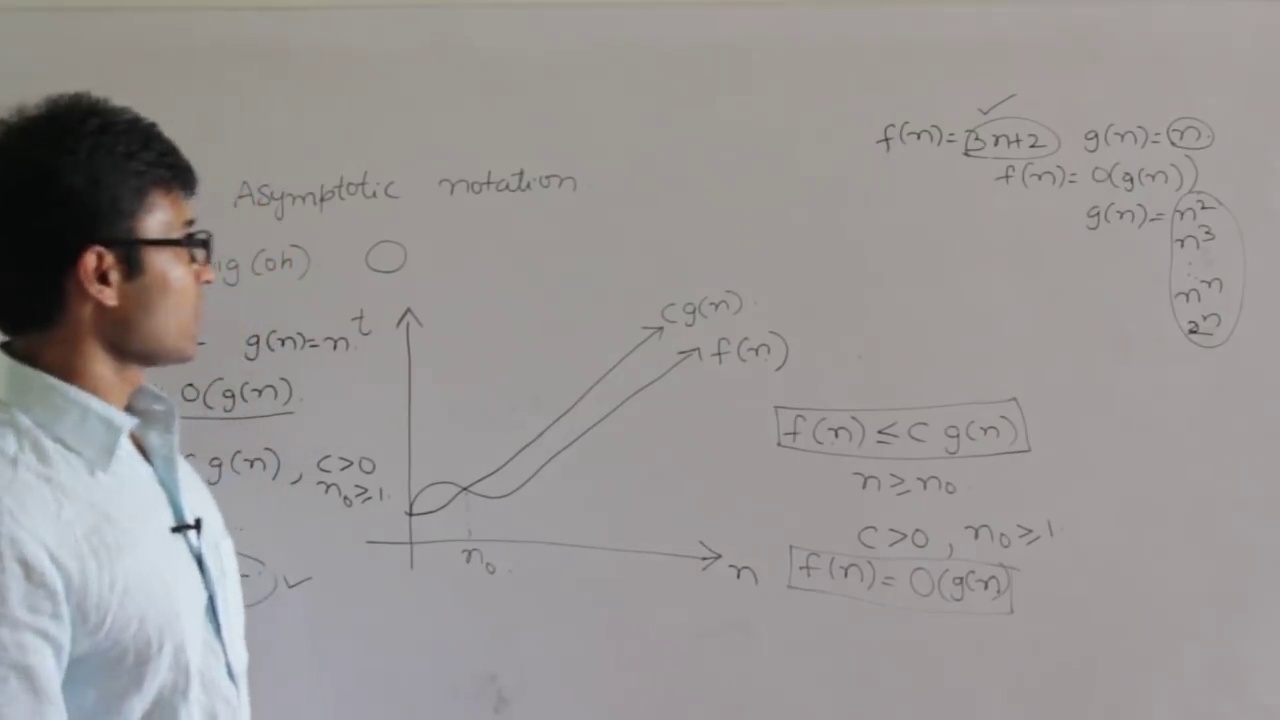 Asymptotic notation
ig (oh) O
g(n)=n t
O(g(n)).
g(n), c>0
n₀≥1.
cg(n).
f(n)
n₀.
n
f(n)=3n+2 g(n)=n.
f(n)= O(g(n))
g(n)=n²
n³
⋮
nⁿ
2ⁿ
f(n)≤c g(n)
n≥n₀
c>0, n₀≥1.
f(n)= O(g(n)